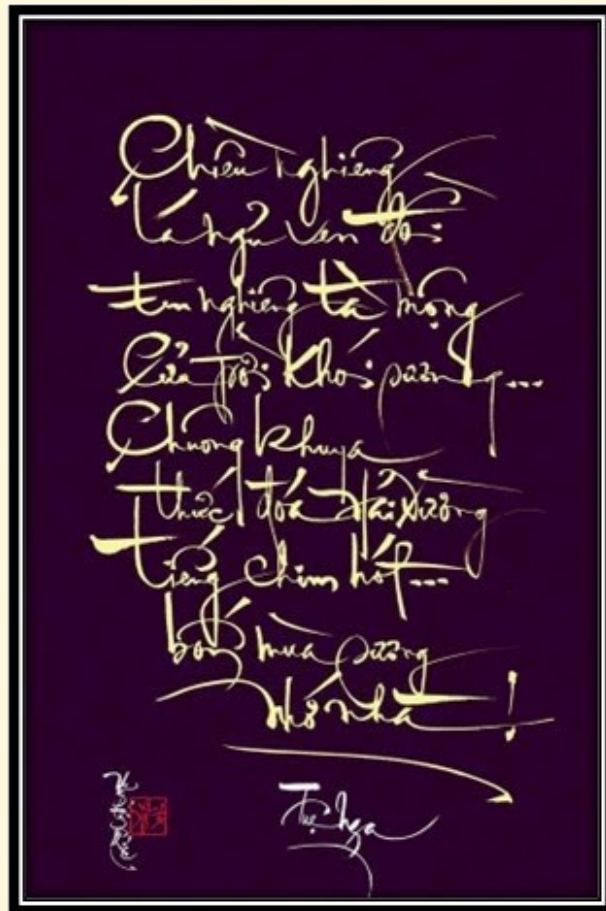 Chiều nghiêng
lá ngủ ven đồi
tim nghiêng tà mộng
Cửa trời khói sương...
Chuông khuya
thức đóa Hải Đường
Tiếng chim hót...
mùa sương
Nhớ nhà!
Tuệ Nga